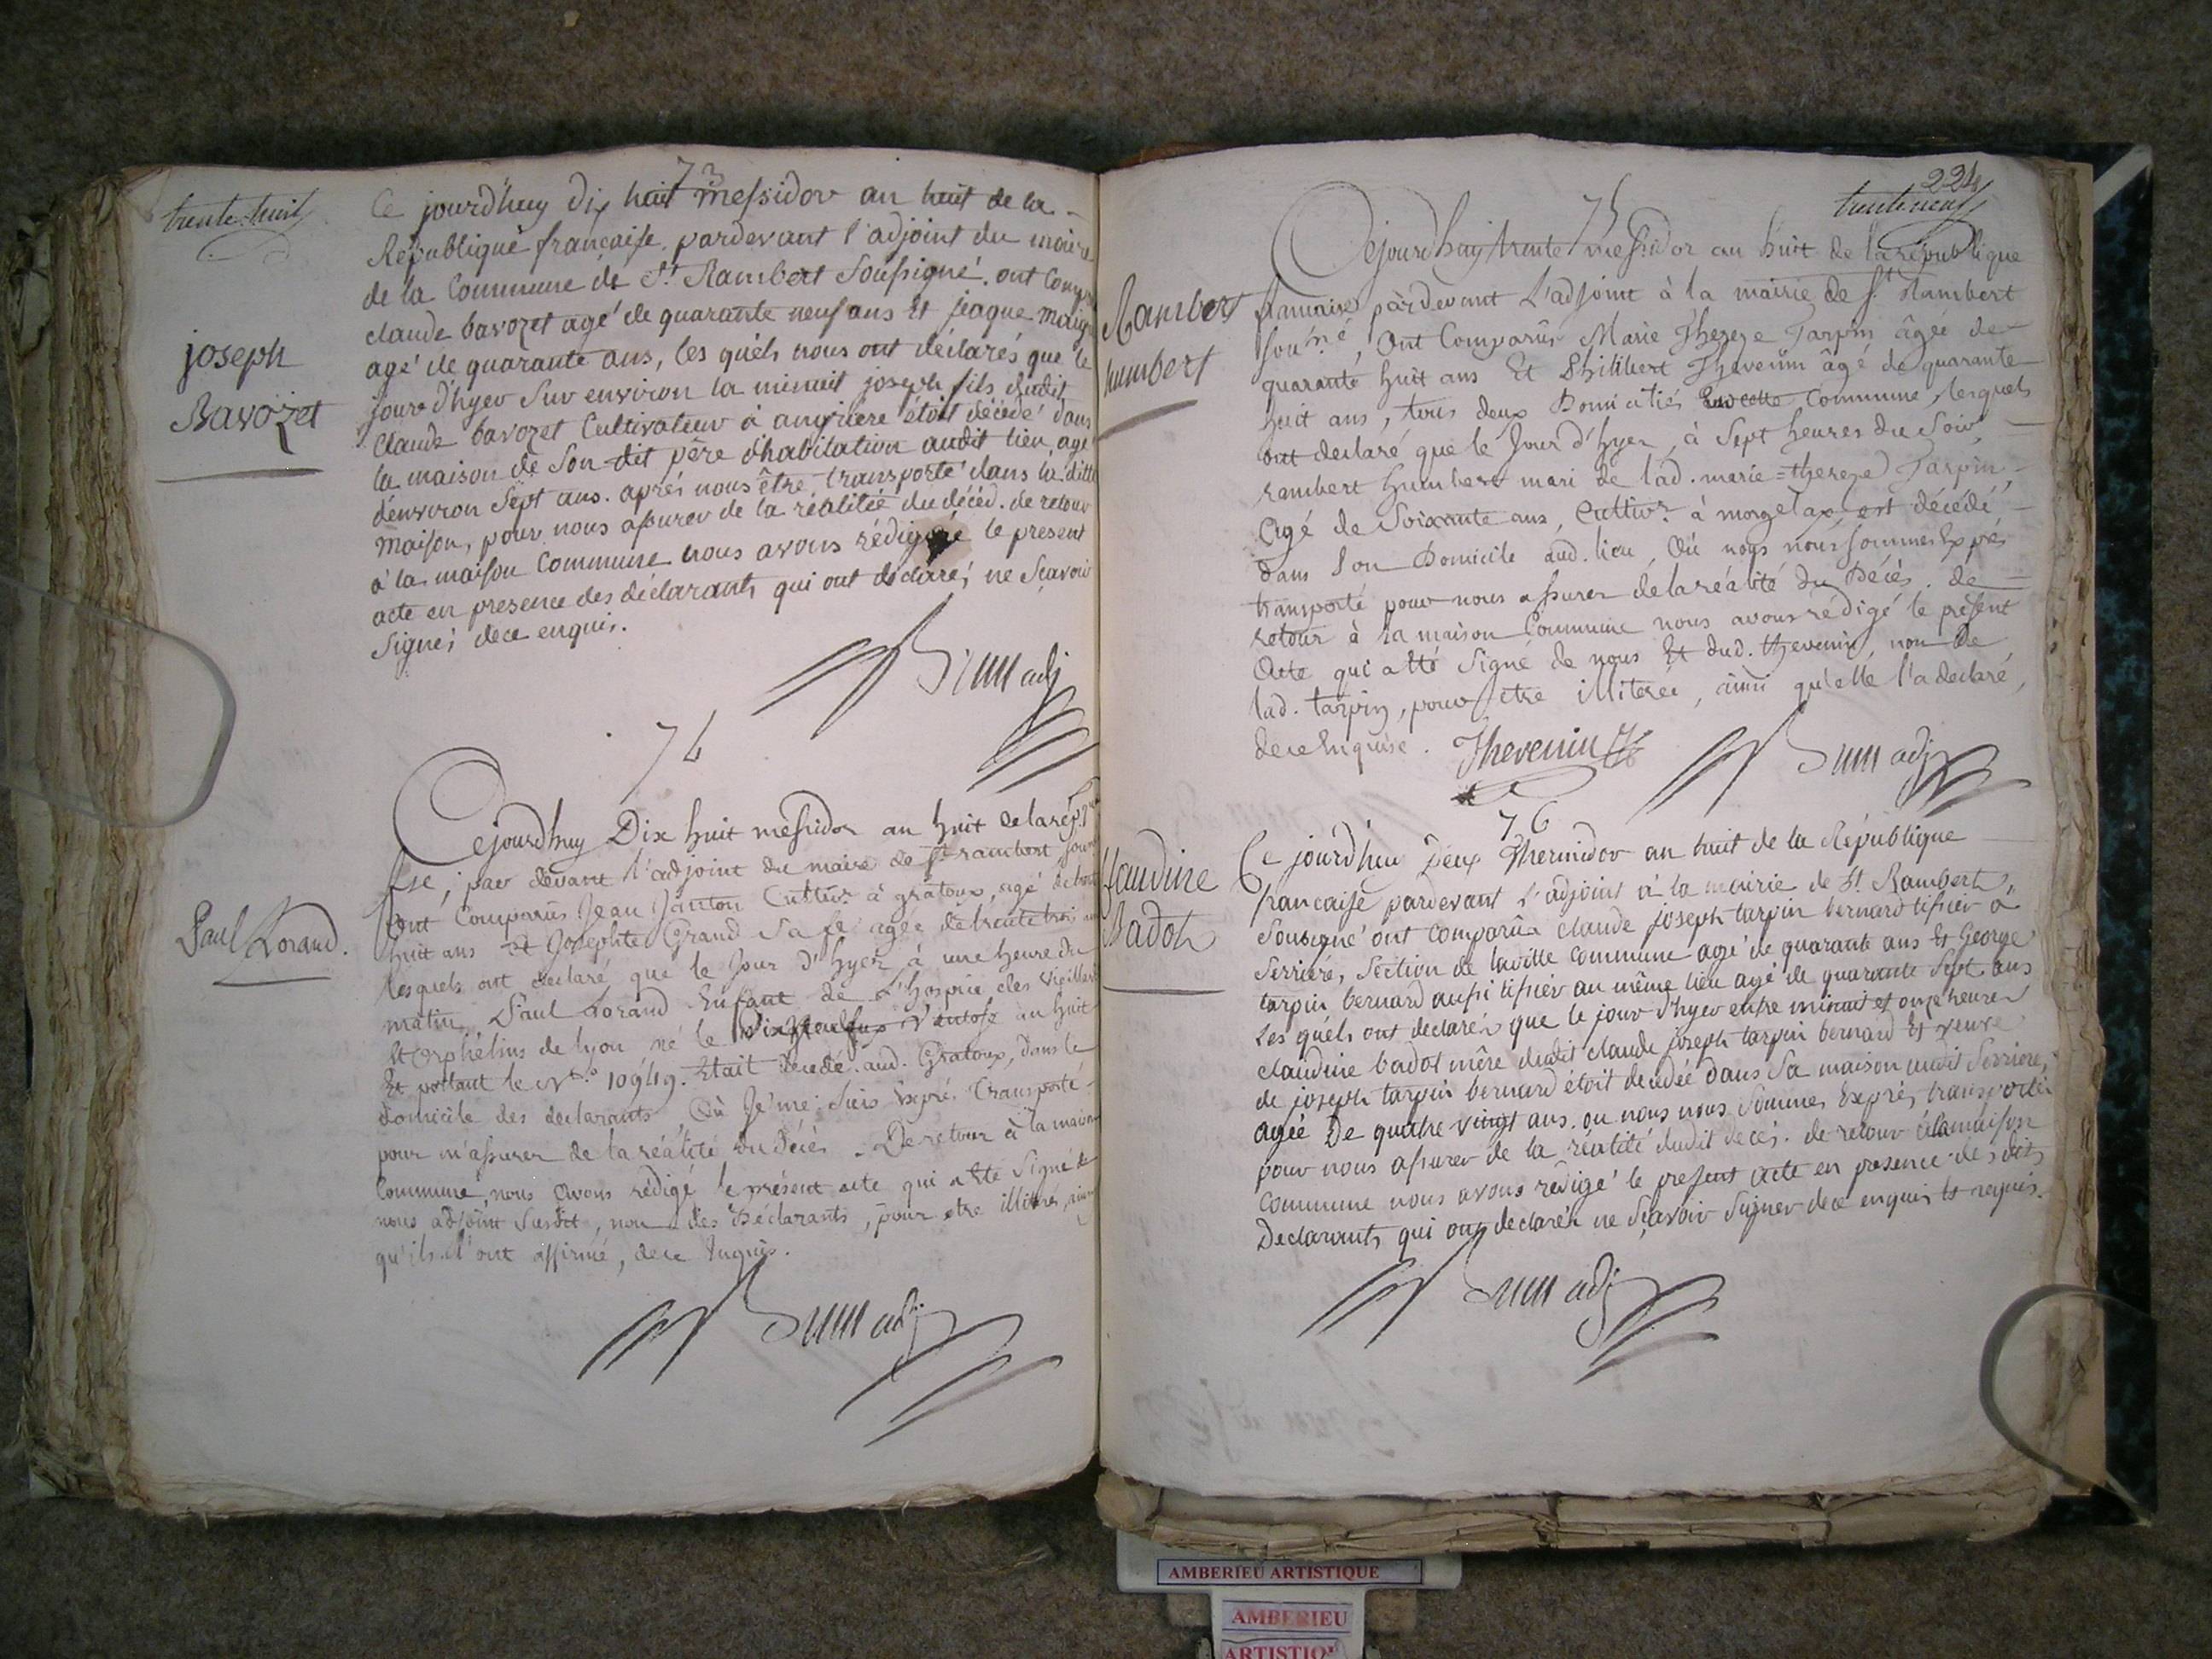 trente-huit
73
Ce jourd'huy dix huit messidor an huit de la
République française, pardevant l'adjoint du maire
de la Commune de St. Rambert Soussigné. ont Comp
joseph
Bavozet
claude bavozet agé de quarante neuf ans Et jeaque
agé de quarante ans, les quels nous ont déclarés que le
jour d'hyer Sur environ la minuit joseph fils dudit
Claude bavozet Cultivateur à angriere étoit décédé dans
la maison de Son dit père d'habitation audit lieu, agé
d'environ Sept ans. aprés nous être transporté dans la ditte
maison, pour nous assurer de la réalitée du décéd. de retour
à la maison Commune nous avons rédigé le present
acte en presence des déclarants qui ont déclarés ne Scavoir
Signés dece enquis.
adj
74
Cejourdhuy Dix huit messidor an huit de la rep.
fse, par devant l'adjoint du maire de St. rambert,
Paul Lorand.
Ont Comparus Jean Janton Cultivr. à gratoux, agé de
huit ans et Josephte Grand Sa fe agée de trente trois
lesquels ont declaré que le Jour d'hyer à une heure du
matin, Paul Lorand Enfant de L'hospice des Vieillards
Et Orphélins de lyon né le Ventose an huit
Et portant le N.º 10949. Etait decedé aud. Gratoux, dans le
domicile des declarants, Où Je me suis Exprés Transporté
pour m'assurer de la réalité du Décés. De retour à la maison
Commune, nous avons rédigé le présent acte qui a Eté Signé de
nous adjoint Susdit, non des Déclarants, pour etre illitérés,
qu'ils l'ont affirmé, dece Inquis.
adj
224
trente neuf
75
Cejourdhuy trente messidor an huit de la république
Rambert
humbert
francaise pardevant L'adjoint à la mairie de St. Rambert
sousné, Ont Comparus Marie Thereze Tarpin âgée de
quarante huit ans Et Philibert Thevenin âgé de quarante
huit ans, tous deux Domiciliés Commune, lesquels
ont declaré que le Jour d'hyer, à Sept heures du Soir,
rambert humbert mari de lad. marie=thereze Tarpin,
Agé de Soixante ans, Cultivr. à morgelax est décédé
dans Son Domicile aud. lieu, Où nous nous sommes Exprés
transporté pour nous assurer de la réalité du Décés. de
retour à la maison Commune nous avons rédigé le présent
Acte qui a Eté Signé de nous Et dud. thevenin, non de
lad. tarpin, pour etre illiterée, ainsi qu'elle l'a declaré,
dece Enquise. Thevenin
adj
76
Ce jourd'hui Deux Thermidor an huit de la République
Claudine
Badot
francaise pardevant l'adjoint à la mairie de St. Rambert,
Sousigné ont comparûs claude joseph tarpin bernard tissier à
Serriere, Section de laditte Commune agé de quarante ans Et George
tarpin bernard aussi tissier au même lieu agé de quarante Sept ans
Les quéls ont declarés que le jour d'hyer entre minuit et onze heures
claudine badot mêre dudit claude joseph tarpin bernard Et veuve
de joseph tarpin bernard étoit decedée dans Sa maison audit Serriere,
agée De quatre vingt ans. ou nous nous Sommes Exprés transportés
pour nous assurer de la réalité dudit decés. de retour à la maison
Commune nous avons rédigé le present Acte en presence des dits
Declarants qui ont declarés ne Sçavoir Signer dece enquis Et requis.
adj
AMBERIEU ARTISTIQUE
AMBERIEU
ARTISTIQU